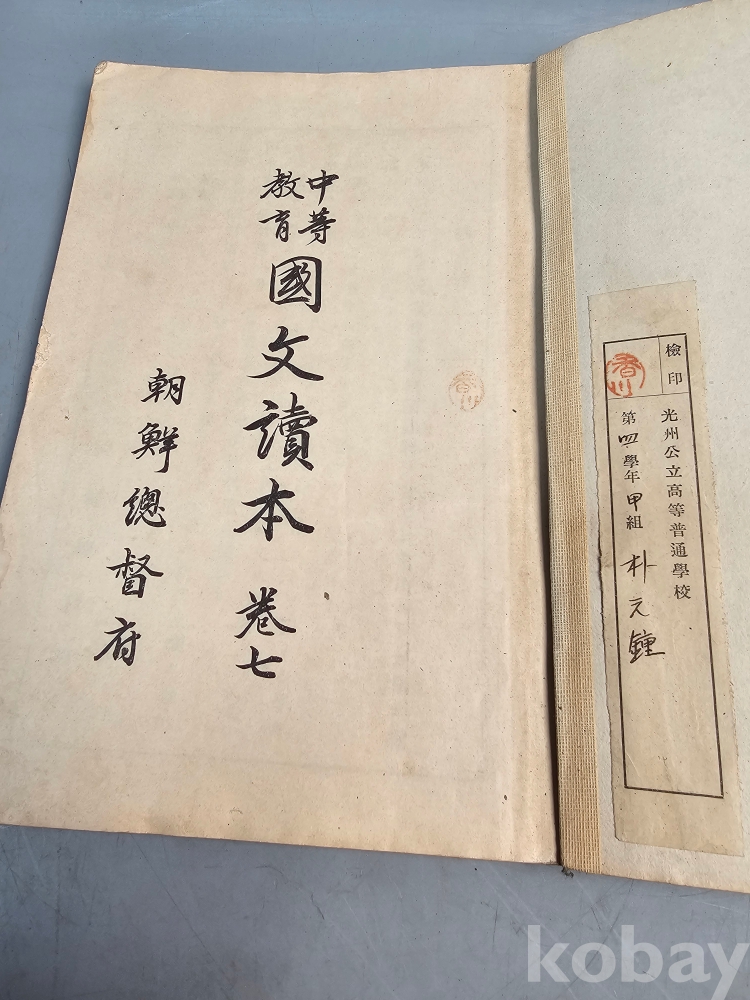 檢印
香川
光州公立高等普通學校
第四學年甲組 朴元鍾
香川
中等
教育
國文讀本 卷七
朝鮮總督府
kobay